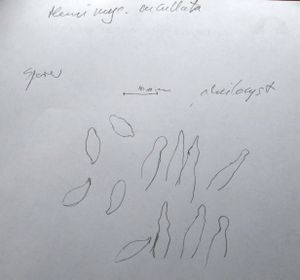 Hemimyc. cucullata
spores
cheilocyst